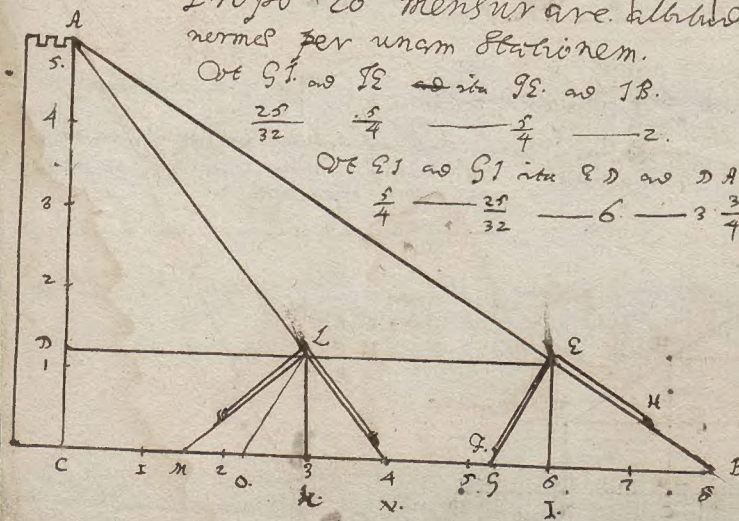 20 mensurare
nermes per unam Stationem.
Vt GI. ad IE ita GE. ad IB.
25/32 5/4 — 5/4 — 2.
Vt EI ad GI ita ED ad DA
5/4 — 25/32 — 6 — 3 3/4
A
5.
4
3
2
D
1
L
E
H
F.
C 1 M 2 O. 3 4 5. G 6. 7 8 B
K. N. I.